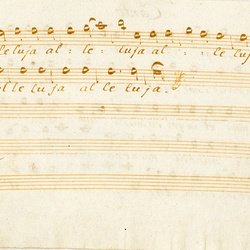 leluja al : le - luja al : : : le luja
alleluja al le luja.